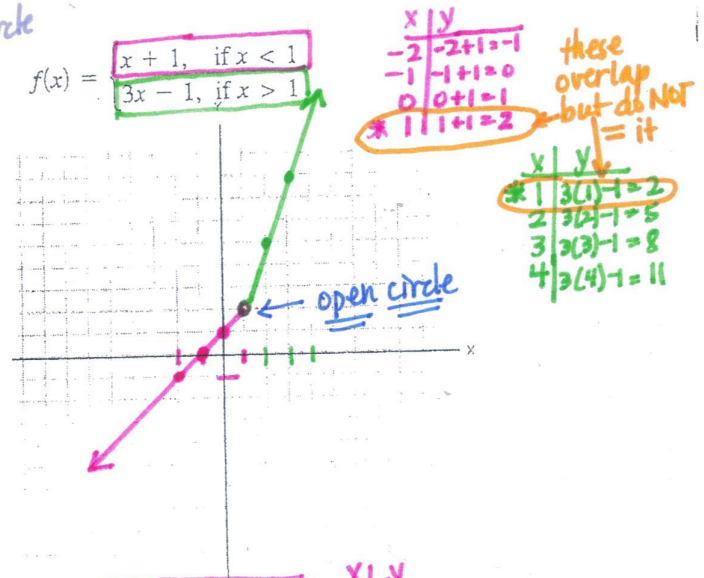 rcle
x + 1, if x < 1
f(x) =
3x − 1, if x > 1
x y
-2 -2+1=-1
-1 -1+1=0
0 0+1=1
* 1 1+1=2
these
overlap
but do NOT
= it
x y
* 1 3(1)-1=2
2 3(2)-1=5
3 3(3)-1=8
4 3(4)-1=11
open circle
x
x y